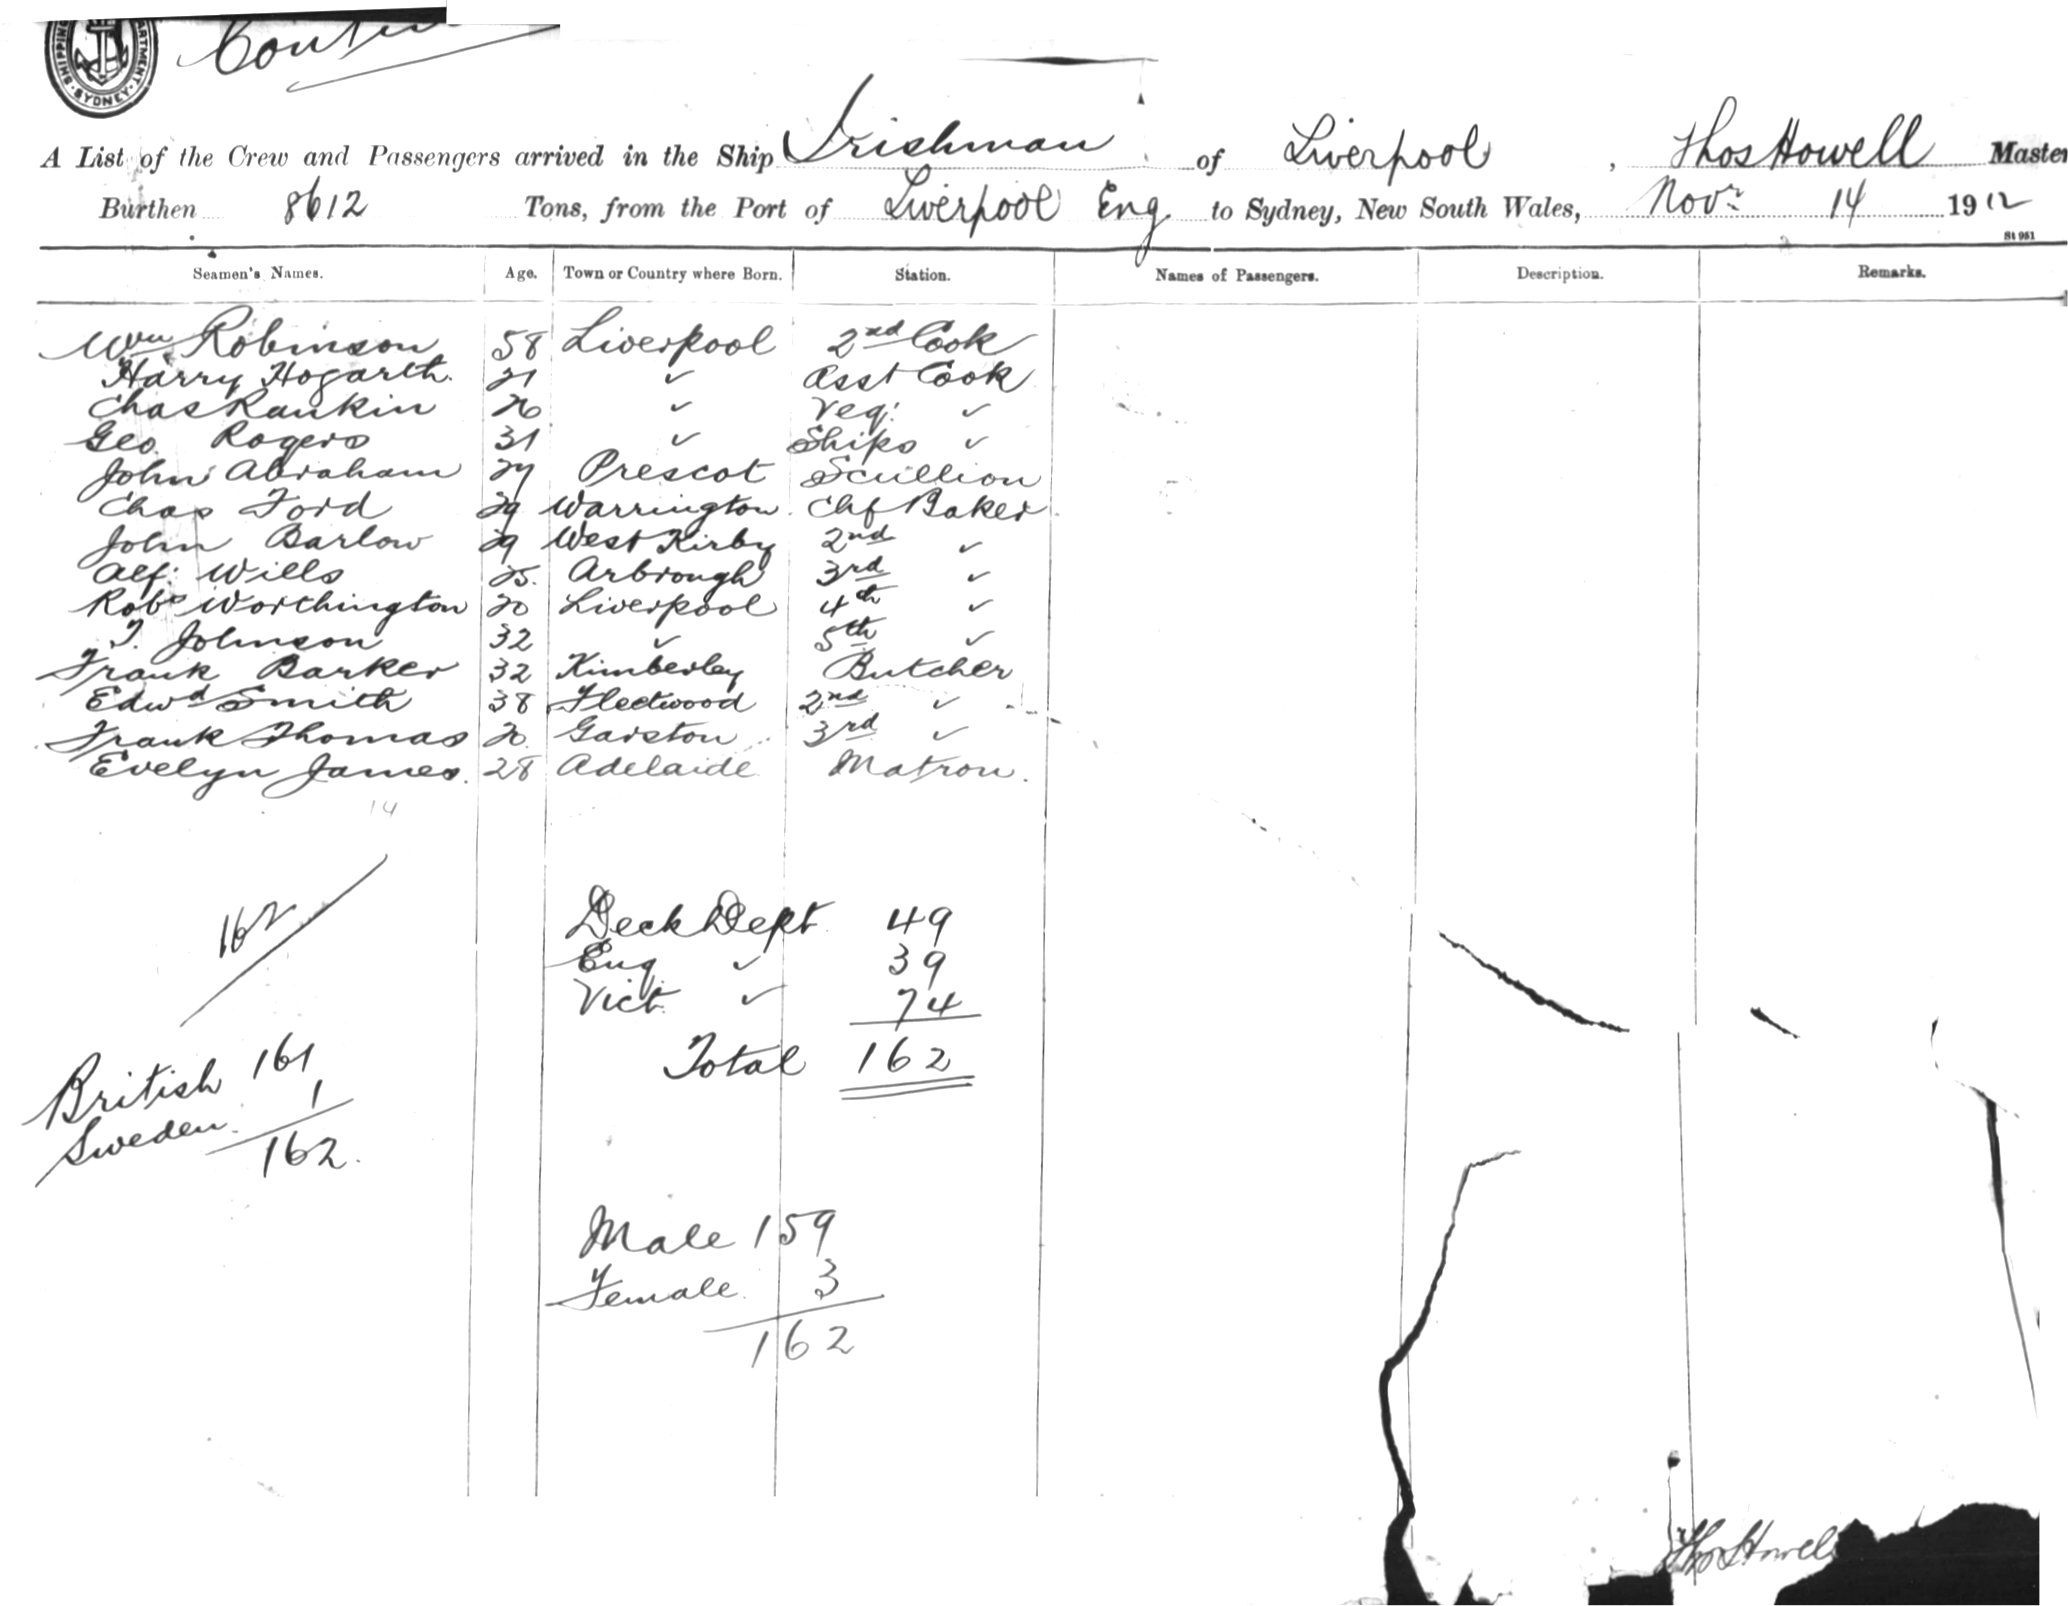 SHIPPING DEPARTMENT SYDNEY
A List of the Crew and Passengers arrived in the Ship Irishman of Liverpool, Thos Howell Master
Burthen 8612 Tons, from the Port of Liverpool Eng to Sydney, New South Wales, Novr 14 1912
St 951
Seamen's Names. Age. Town or Country where Born. Station. Names of Passengers. Description. Remarks.
Wm Robinson 58 Liverpool 2nd Cook
Harry Hogarth. 21 ✓ Asst Cook
Chas Rankin 26 ✓ Veg: ✓
Geo. Rogers 31 ✓ Ships ✓
John Abraham Prescot Scullion
Chas Ford 29 Warrington Chf Baker
John Barlow 29 West Kirby 2nd ✓
Alf. Wills 25. Arbrough 3rd ✓
Robt Worthington 20 Liverpool 4th ✓
T. Johnson 32 ✓ 5th ✓
Frank Barker 32 Kimberley Butcher
Edwd Smith 38 Fleetwood 2nd ✓
Frank Thomas 20. Garston 3rd ✓
Evelyn James. 28 Adelaide Matron.
14
162
Deck Dept. 49
Eng ✓ 39
Vict. ✓ 74
Total 162
British 161
Sweden. 1
162.
Male 159
Female. 3
162
Thos Howell